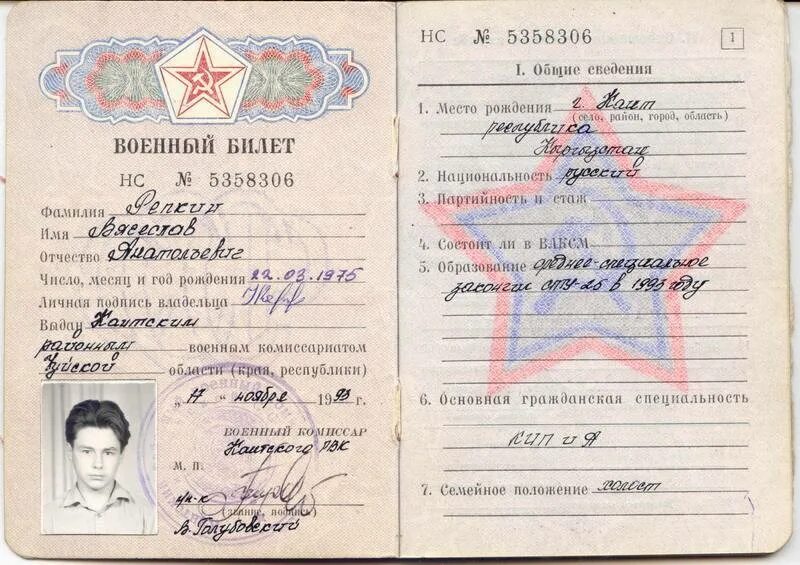 ВОЕННЫЙ БИЛЕТ
НС № 5358306
Фамилия Репкин
Имя Вячеслав
Отчество Анатольевич
Число, месяц и год рождения 22.03.1975
Личная подпись владельца
Выдан Кантским
районным военным комиссариатом
Чуйской области (края, республики)
„17“ ноября 1993 г.
ВОЕННЫЙ КОМИССАР
Кантского РВК
М. П.
п/п-к
(звание, подпись)
В. Голубовский
НС № 5358306
1
I. Общие сведения
1. Место рождения г. Кант
(село, район, город, область)
республика
Кыргызстан
2. Национальность русский
3. Партийность и стаж
4. Состоит ли в ВЛКСМ
5. Образование среднее-специальное
закончил СПТУ-26 в 1993 году
6. Основная гражданская специальность
КИП и А
7. Семейное положение холост